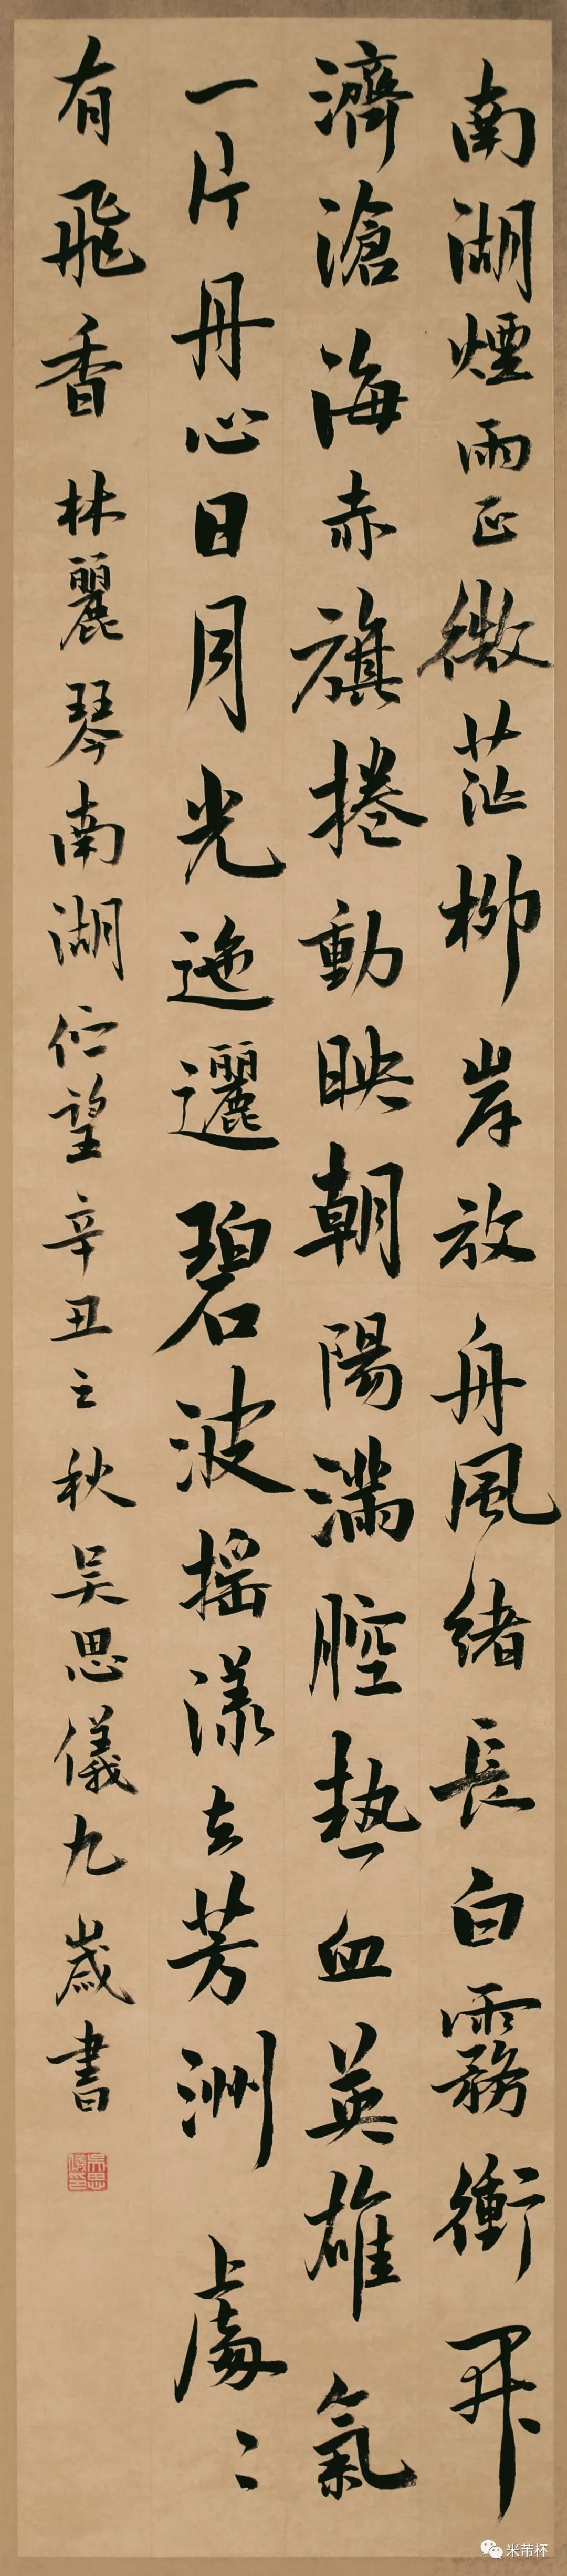 南湖煙雨正微茫柳岸放舟風緒長白霧衝開
濟滄海赤旗捲動映朝陽滿腔熱血英雄氣
一片丹心日月光迤邐碧波搖漾去芳洲上處〻
有飛香 林麗琴南湖仰望辛丑之秋吳思儀九歲書
吳思儀印
米芾杯